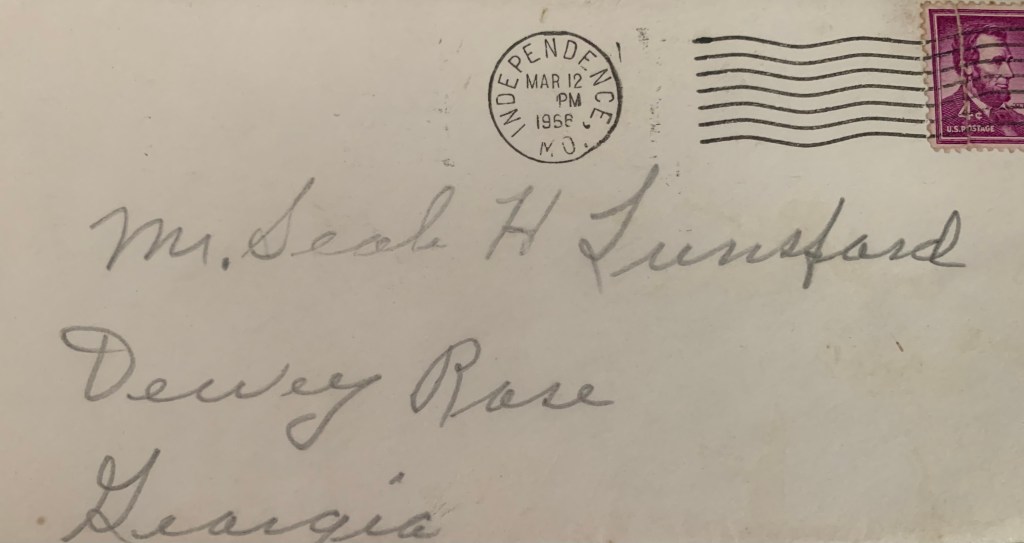 INDEPENDENCE, MO.
MAR 12
PM
1958
4¢
U.S. POSTAGE
Mr. Seab H Lunsford
Dewey Rose
Georgia